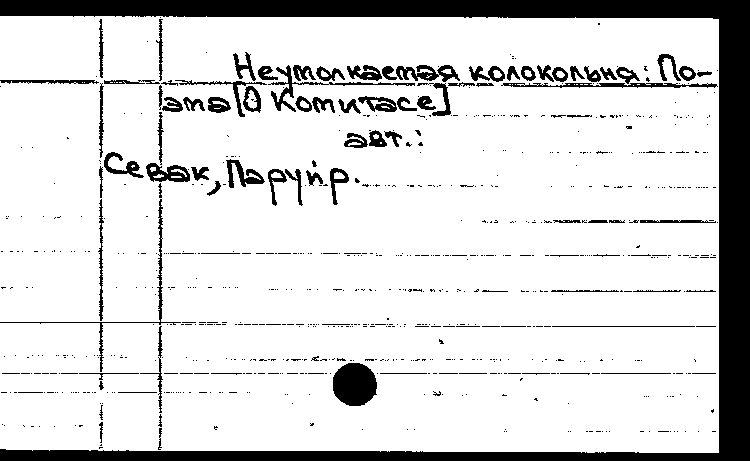 Неумолкаемая колокольня: По-
эма [О Комитасе]
авт.:
Севак, Паруйр.